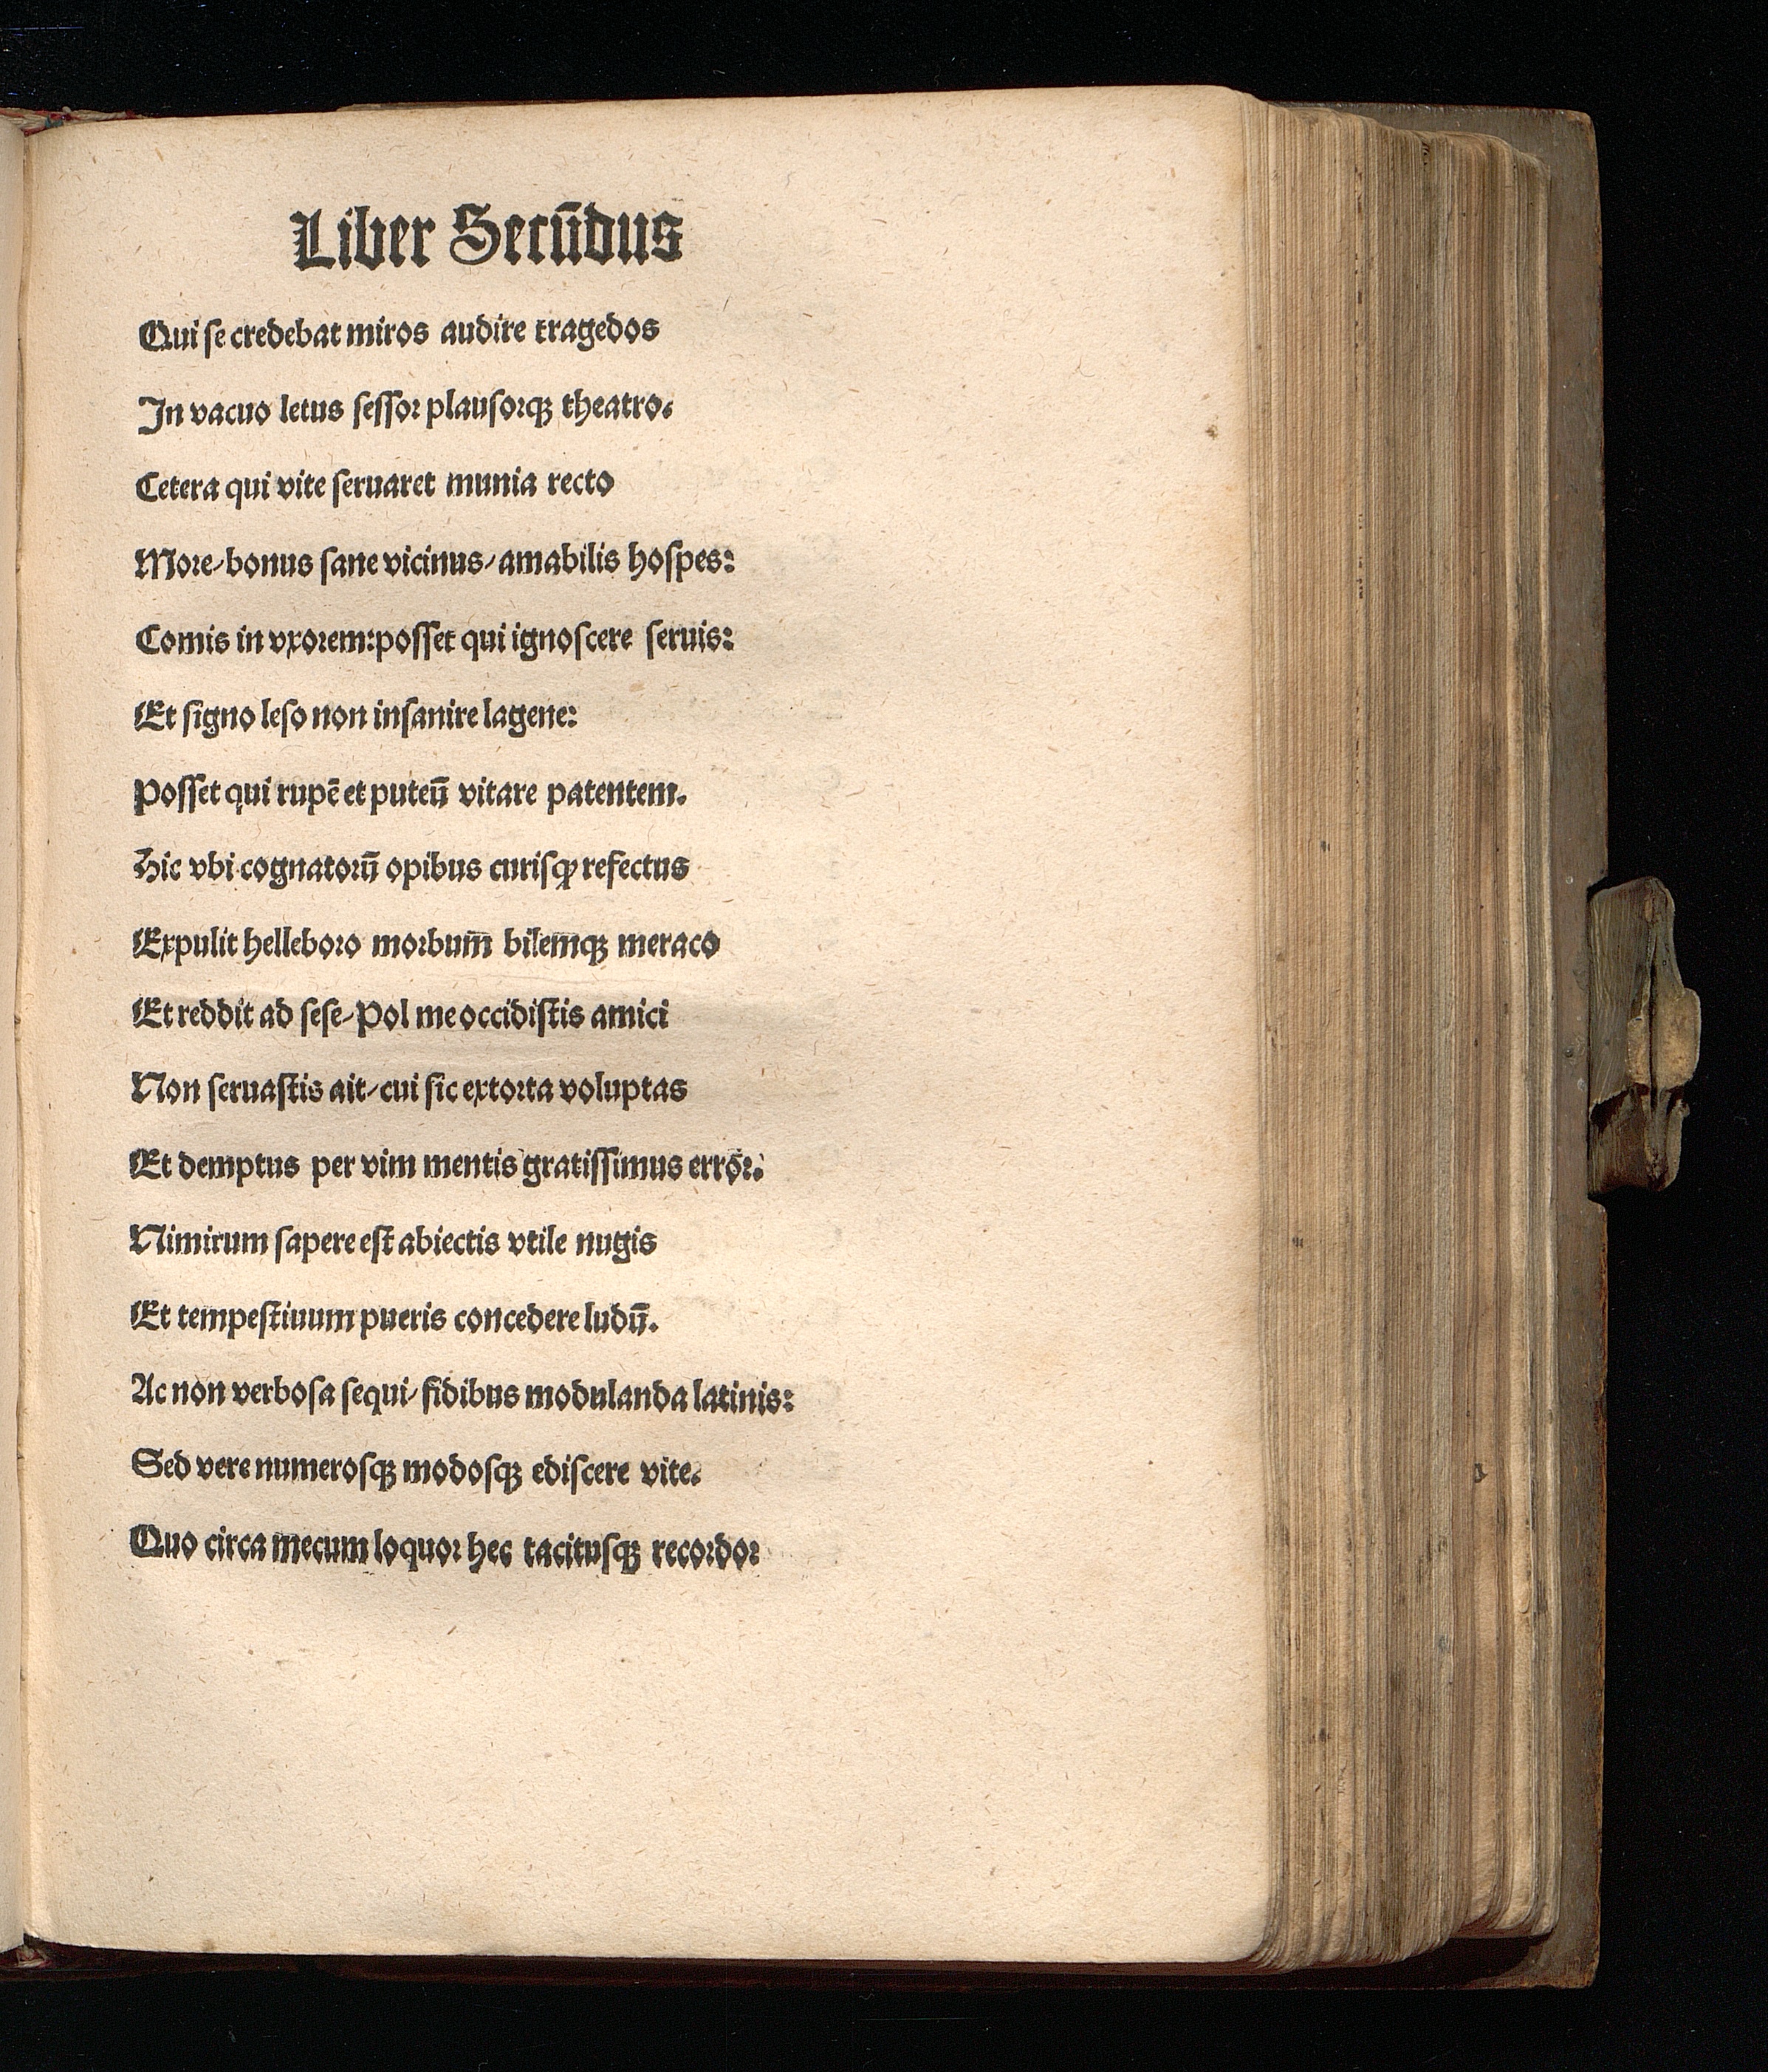 Liber Secūdus
Qui ſe credebat miros audire tragedos
In vacuo letus ſeſſor plauſorqꝫ theatro.
Cetera qui vite ſeruaret munia recto
More/bonus ſane vicinus/amabilis hoſpes:
Comis in vxorem:poſſet qui ignoſcere ſeruis:
Et ſigno leſo non inſanire lagene:
Poſſet qui rupē et puteū vitare patentem.
Hic vbi cognatorū opibus curiſqꝫ refectus
Expulit helleboro morbum̄ bilemqꝫ meraco
Et reddit ad ſeſe/Pol me occidiſtis amici
Non ſeruaſtis ait/cui ſic extorta voluptas
Et demptus per vim mentis gratiſſimus error.
Nimirum ſapere eſt abiectis vtile nugis
Et tempeſtiuum pueris concedere ludū.
Ac non verboſa ſequi/fidibus modulanda latinis:
Sed vere numeroſqꝫ modoſqꝫ ediſcere vite.
Quo circa mecum loquor hec tacituſqꝫ recordor